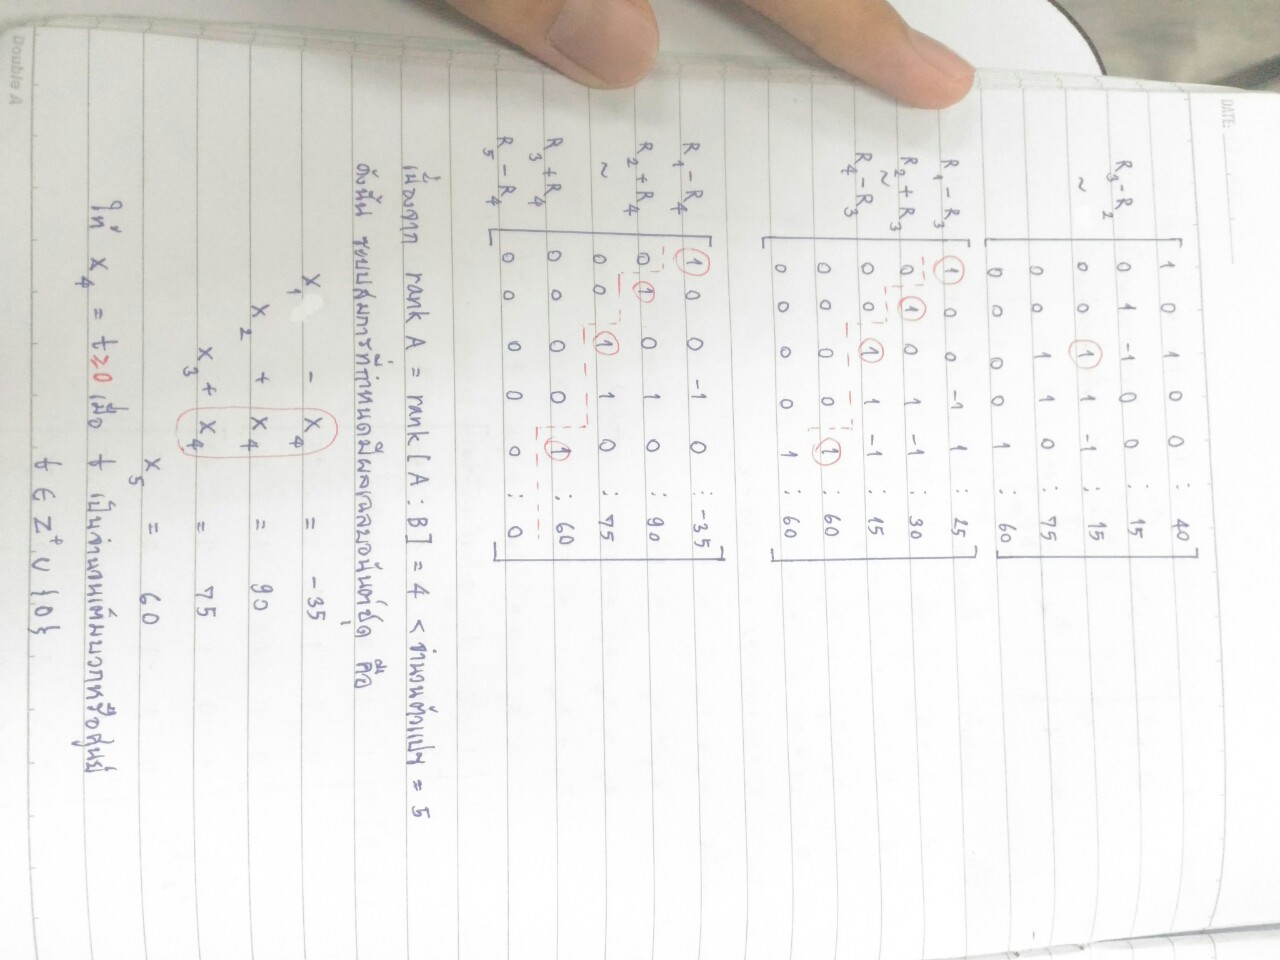 DATE:
1 0 1 0 0 : 40
R₃-R₂ 0 1 -1 0 0 : 15
~ 0 0 1 1 -1 : 15
0 0 1 1 0 : 75
0 0 0 0 1 : 60
R₁ - R₃ 1 0 0 -1 1 : 25
R₂ + R₃ 0 1 0 1 -1 : 30
~
R₄ - R₃ 0 0 1 1 -1 : 15
0 0 0 0 1 : 60
0 0 0 0 1 : 60
R₁ - R₄ 1 0 0 -1 0 : -35
R₂ + R₄ 0 1 0 1 0 : 90
~ 0 0 1 1 0 : 75
R₃ + R₄ 0 0 0 0 1 : 60
R₅ - R₄ 0 0 0 0 0 : 0
เนื่องจาก rank A = rank [A : B] = 4 < จำนวนตัวแปร = 5
ดังนั้น ระบบสมการที่กำหนดมีผลเฉลยอนันต์ชุด คือ
x₁ - x₄ = -35
x₂ + x₄ = 90
x₃ + x₄ = 75
x₅ = 60
ให้ x₄ = t ≥ 0 เมื่อ t เป็นจำนวนเต็มบวกหรือศูนย์
t ∈ Z⁺ ∪ {0}
Double A